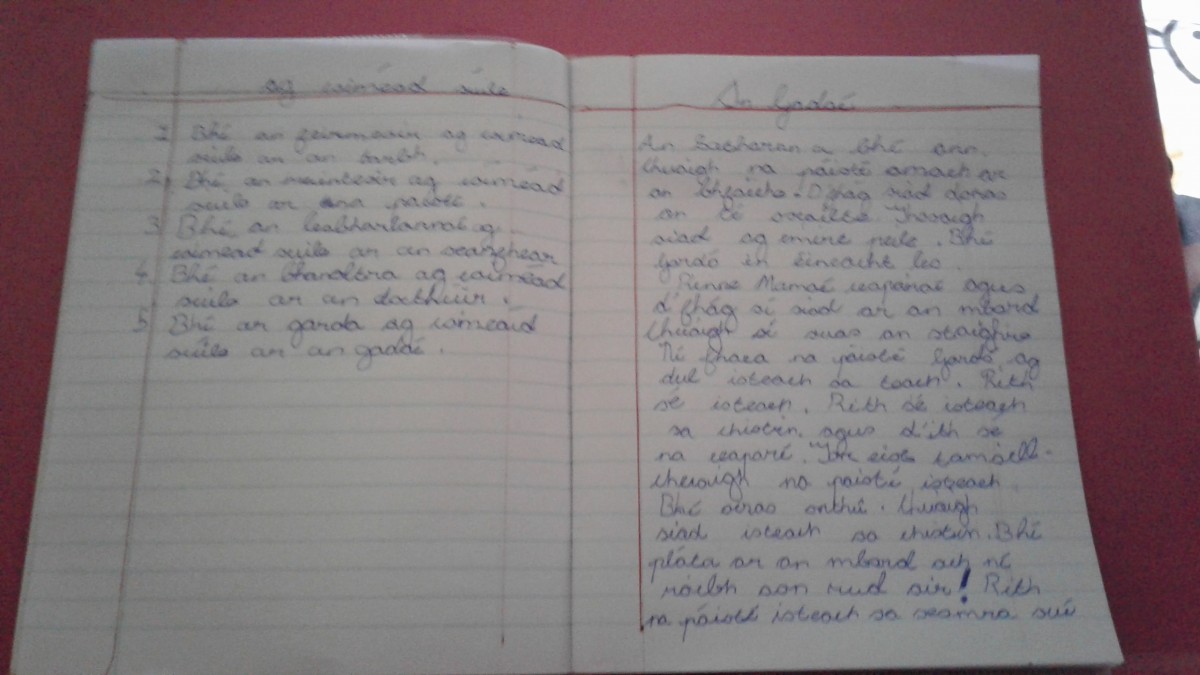 ag coiméad súile
1 Bhí an feirmeoir ag coiméad
súile ar an tarbh.
2. Bhí an múinteoir ag coiméad
súile ar na páistí.
3 Bhí an leabharlannaí ag
coiméad súile ar an seanfhear
4. Bhí an bhanaltra ag coiméad
súile ar an dochtúir.
5. Bhí an garda ag coiméad
súile ar an gadaí.
An Gadaí
An Satharan a bhí ann.
Chuaigh na páistí amach ar
an bhfaiche. D'fhág siad doras
an tí oscailte. Thosaigh
siad ag imirt peile. Bhí
in éineacht leo.
Rinne Mamaí ceapairí agus
d'fhág sí siad ar an mbord
Chuaigh sí suas an staighre
Ní fhaca na páistí ag
dul isteach sa teach. Rith
sé isteach. Rith sé isteach
sa chistin agus d'ith sé
na ceapairí. Tar éis tamaill
chuaigh na páistí isteach.
Bhí ocras orthu. Chuaigh
siad isteach sa chistin. Bhí
pláta ar an mbord ach ní
raibh aon rud air! Rith
na páistí isteach sa seomra suí